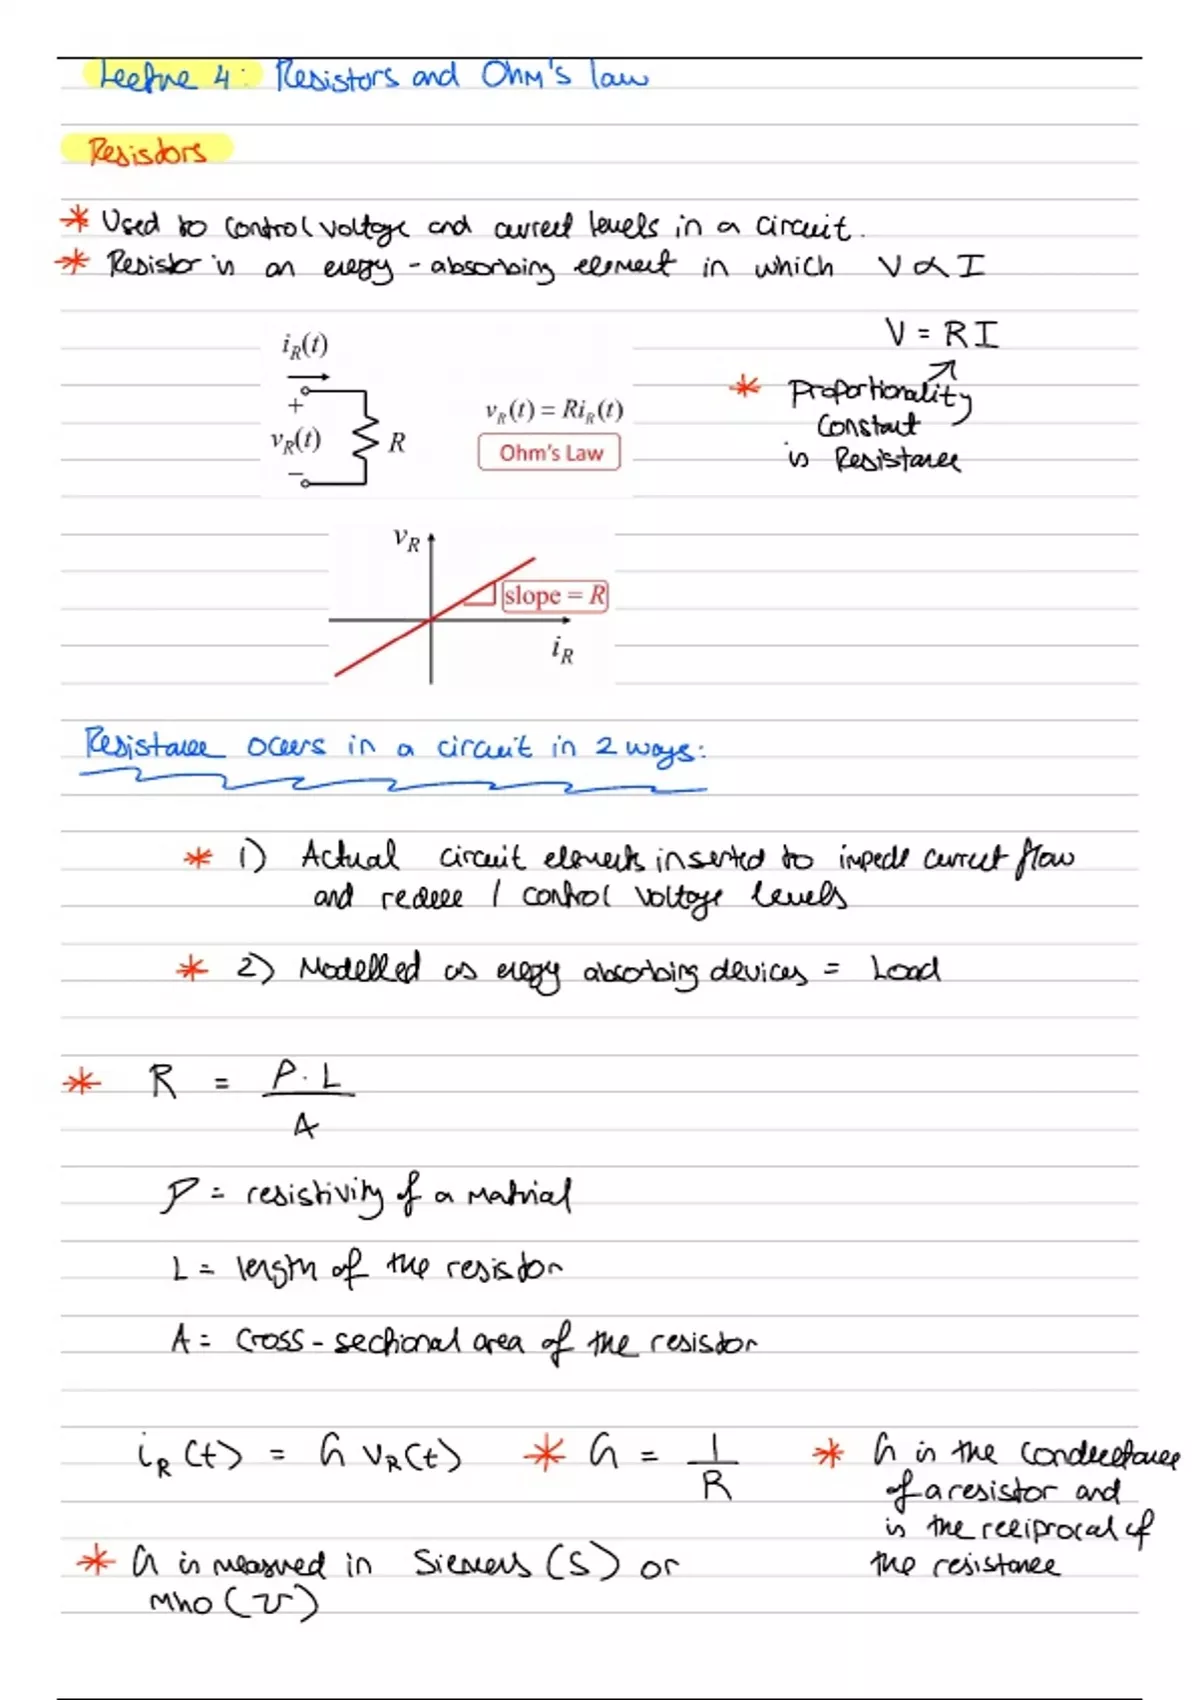 Lecture 4: Resistors and Ohm's law
Resistors
* Used to control voltage and current levels in a circuit.
* Resistor is an energy-absorbing element in which V ∝ I
V = RI
* Proportionality
constant
is Resistance
i_R(t)
+
v_R(t)
R
−
v_R(t) = Ri_R(t)
Ohm's Law
v_R
slope = R
i_R
Resistance occurs in a circuit in 2 ways:
* 1) Actual circuit elements inserted to impede current flow
and reduce / control voltage levels
* 2) Modelled as energy absorbing devices = Load
* R = ρ·L / A
ρ = resistivity of a material
L = length of the resistor
A = cross-sectional area of the resistor
i_R(t) = G v_R(t) * G = 1 / R
* G is the conductance
of a resistor and
is the reciprocal of
the resistance
* G is measured in Siemens (S) or
Mho (℧)